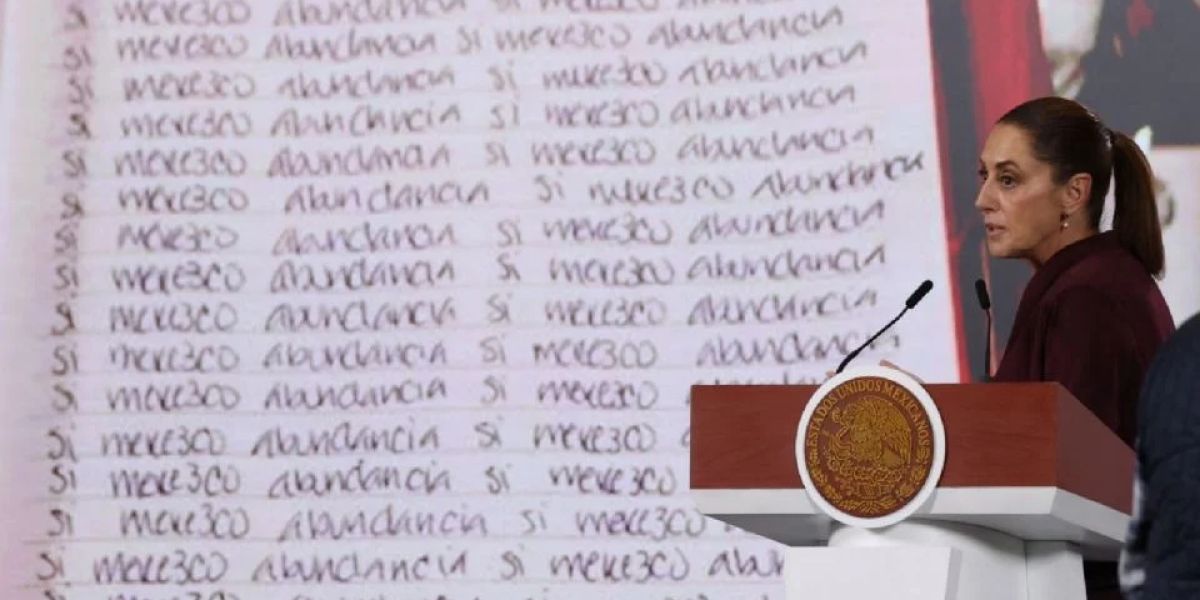 si merezco abundancia si merezco
si merezco abundancia si merezco abundancia
si merezco abundancia si merezco abundancia
si merezco abundancia si merezco abundancia
si merezco abundancia si merezco abundancia
si merezco abundancia si merezco abundancia
si merezco abundancia si merezco abundancia
si merezco abundancia si merezco abundancia
si merezco abundancia si merezco abundancia
si merezco abundancia si merezco abundancia
si merezco abundancia si merezco
si merezco abundancia si merezco
si merezco abundancia si merezco
si merezco abundancia si merezco
si merezco abundancia si merezco abund
ESTADOS UNIDOS MEXICANOS